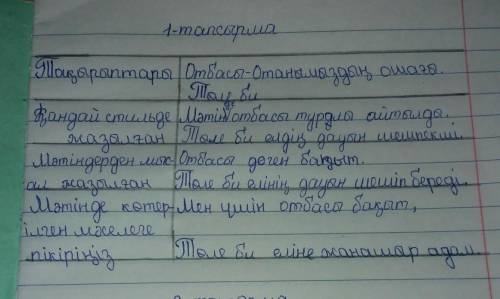 1-тапсырма
Тақырыптары Отбасы-Отанымыздың ошағы.
Төле би
Қандай стильде Мәтін отбасы турдлы айтылды.
жазылған Төле би елдің дауын шешпекші.
Мәтіндерден мыс- Отбасы деген бақыт.
ал жазылған Төле би елінің дауын шешіп береді.
Мәтінде көтер- Мен үшін отбасы бақыт,
ілген мәселеге
пікіріңіз Төле би еліне жанашыр адам.